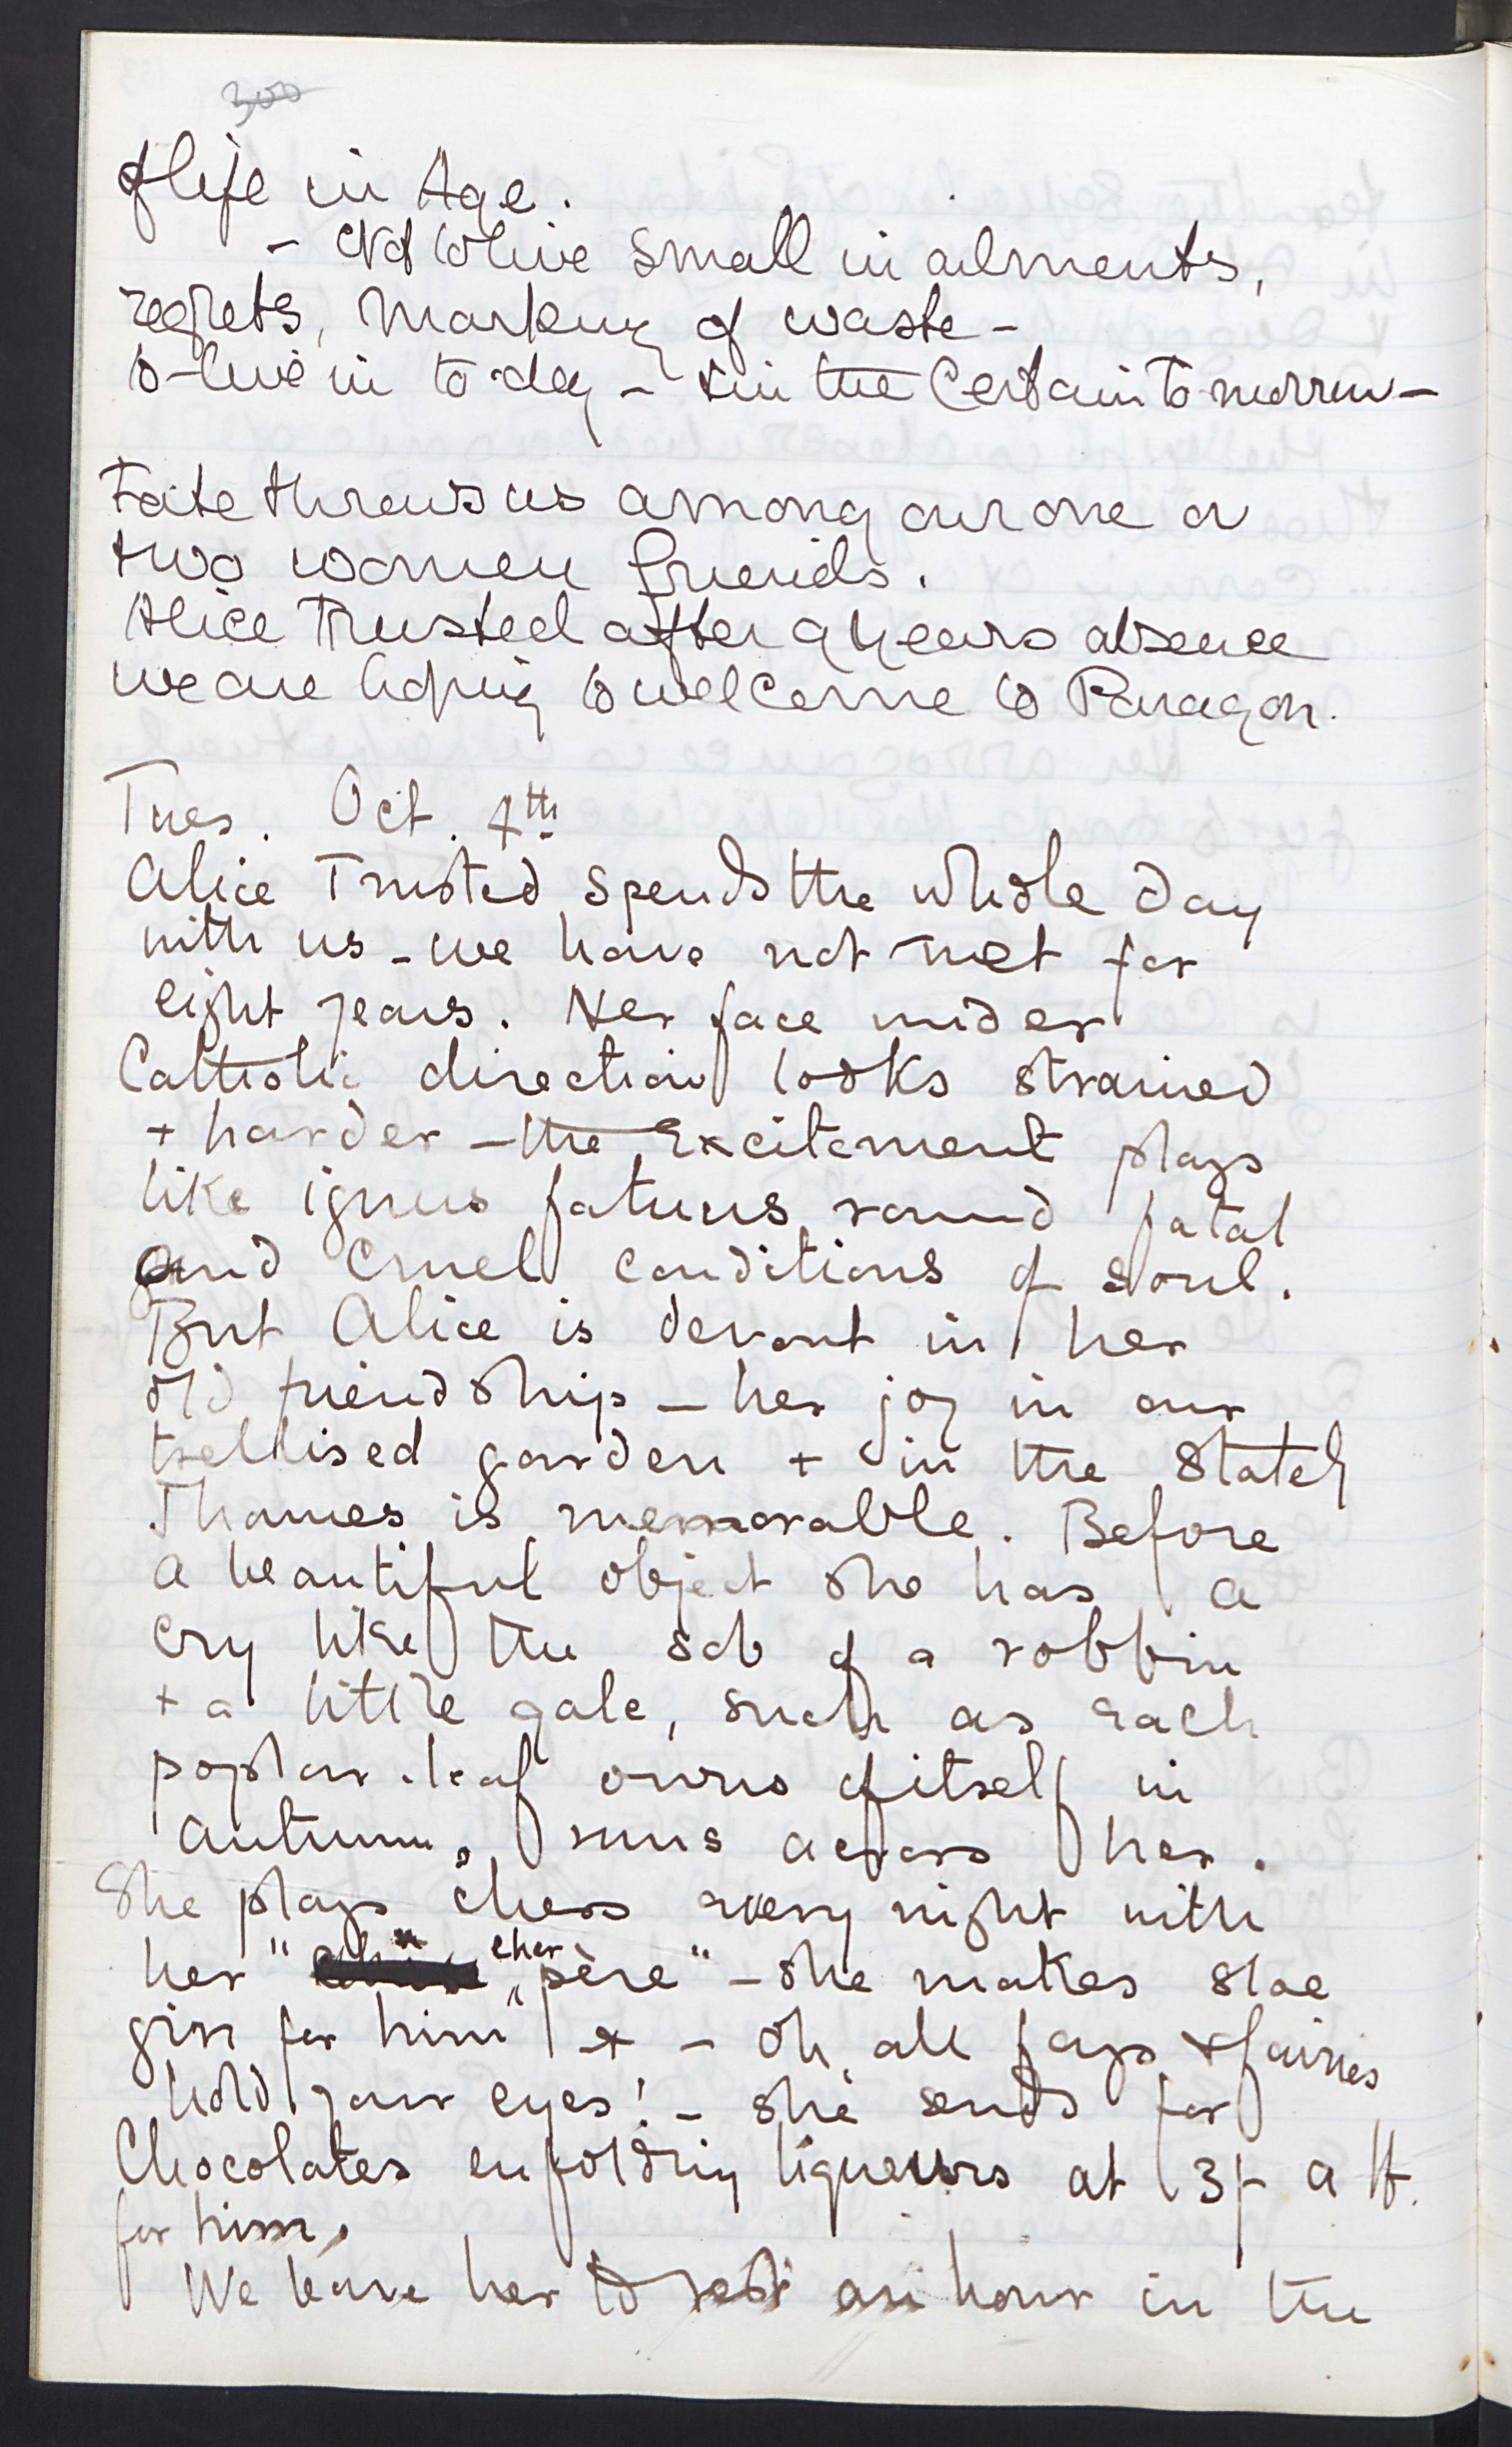 300
of life in Age.
- Not to live small in ailments,
regrets, marking of waste -
to live in to-day - & in the Certain To-morrow -
Fate throws us among our one or
two women friends.
Alice Trusted after 9 years absence
we are hoping to welcome to Paragon.
Tues. Oct. 4th
Alice Trusted spends the whole day
with us - we have not met for
eight years. Her face under
Catholic direction looks strained
+ harder - the excitement plays
like ignus fatuus round fatal
and cruel conditions of soul.
But Alice is devout in her
old friendship - her joy in our
trellised garden + in the stately
Thames is memorable. Before
a beautiful object she has a
cry like the sob of a robbin
+ a little gale, such as each
poplar-leaf owns of itself in
autumn, runs across her.
She plays chess every night with
her "cher père" - she makes sloe
gin for him + - oh all fays & fairies
hold your eyes! - she sends for
Chocolates enfolding liqueurs at 3/- a lb.
for him.
We leave her to rest an hour in the